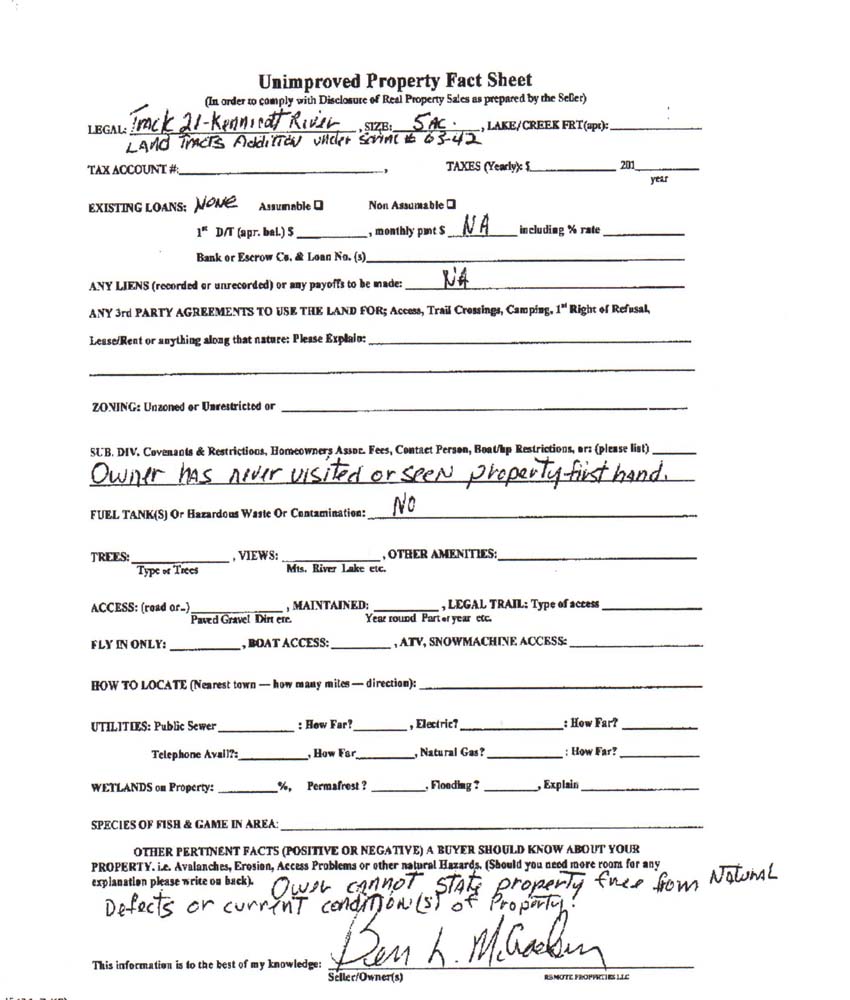 Unimproved Property Fact Sheet
(In order to comply with Disclosure of Real Property Sales as prepared by the Seller)
LEGAL: Track 21-Kennicott River, SIZE: 5 AC., LAKE/CREEK FRT(apr):
LAND TracTS AddiTION under 63-42
TAX ACCOUNT #: , TAXES (Yearly): $ 201
year
EXISTING LOANS: NONE Assumable ☐ Non Assumable ☐
1st D/T (apr. bal.) $ , monthly pmt $ NA including % rate
Bank or Escrow Co. & Loan No. (s)
ANY LIENS (recorded or unrecorded) or any payoffs to be made: NA
ANY 3rd PARTY AGREEMENTS TO USE THE LAND FOR; Access, Trail Crossings, Camping, 1st Right of Refusal,
Lease/Rent or anything along that nature: Please Explain:
ZONING: Unzoned or Unrestricted or
SUB. DIV. Covenants & Restrictions, Homeowners Assoc. Fees, Contact Person, Boat/hp Restrictions, or: (please list)
Owner has never visited or seen property-first hand.
FUEL TANK(S) Or Hazardous Waste Or Contamination: NO
TREES: , VIEWS: , OTHER AMENITIES:
Type of Trees Mts. River Lake etc.
ACCESS: (road or..) , MAINTAINED: , LEGAL TRAIL: Type of access
Paved Gravel Dirt etc. Year round Part of year etc.
FLY IN ONLY: , BOAT ACCESS: , ATV, SNOWMACHINE ACCESS:
HOW TO LOCATE (Nearest town — how many miles — direction):
UTILITIES: Public Sewer : How Far? , Electric? : How Far?
Telephone Avail?: , How Far , Natural Gas? : How Far?
WETLANDS on Property: %, Permafrost ? , Flooding ? , Explain
SPECIES OF FISH & GAME IN AREA:
OTHER PERTINENT FACTS (POSITIVE OR NEGATIVE) A BUYER SHOULD KNOW ABOUT YOUR
PROPERTY. i.e. Avalanches, Erosion, Access Problems or other natural Hazards. (Should you need more room for any
explanation please write on back). Owner cannot STATE property free from Natural
Defects or current condition(s) of Property.
This information is to the best of my knowledge: Ben L.
Seller/Owner(s) REMOTE PROPERTIES LLC